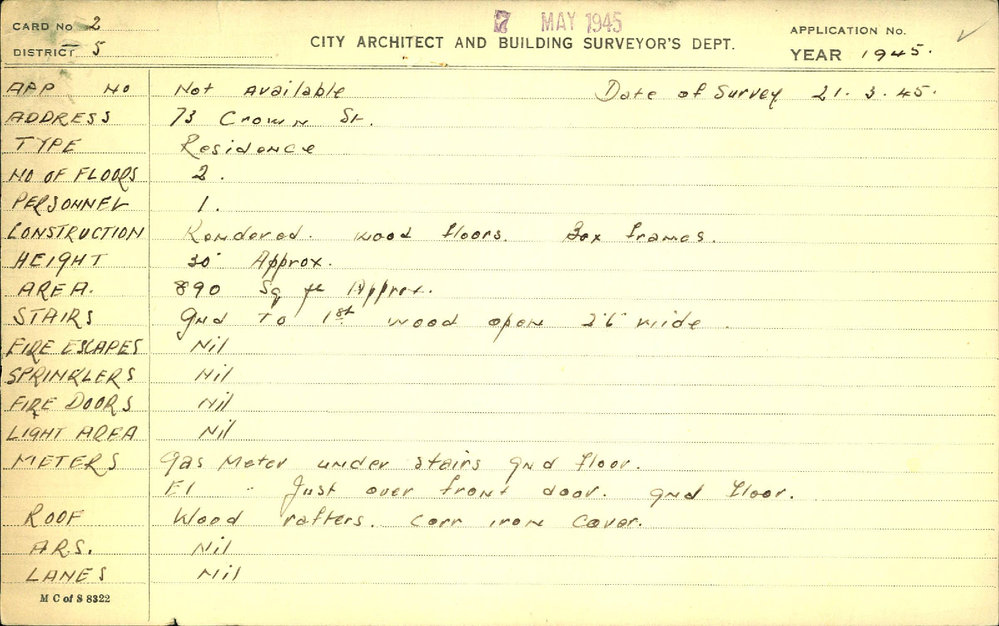 CARD No 2
7 MAY 1945
APPLICATION No.
DISTRICT 5
CITY ARCHITECT AND BUILDING SURVEYOR'S DEPT.
YEAR 1945.
APP NO Not available Date of Survey 21. 3. 45.
ADDRESS 73 Crown St.
TYPE Residence
NO OF FLOORS 2.
PERSONNEL 1.
CONSTRUCTION Rendered. Wood floors. Box frames.
HEIGHT 30' Approx.
AREA. 890 Sq ft Approx.
STAIRS Gnd To 1st wood open 2'6" wide.
FIRE ESCAPES Nil
SPRINKLERS Nil
FIRE DOORS Nil
LIGHT AREA Nil
METERS Gas Meter under stairs gnd floor.
El " Just over front door. gnd floor.
ROOF Wood rafters. Corr iron cover.
A.R.S. Nil
LANES Nil
M C of S 8322